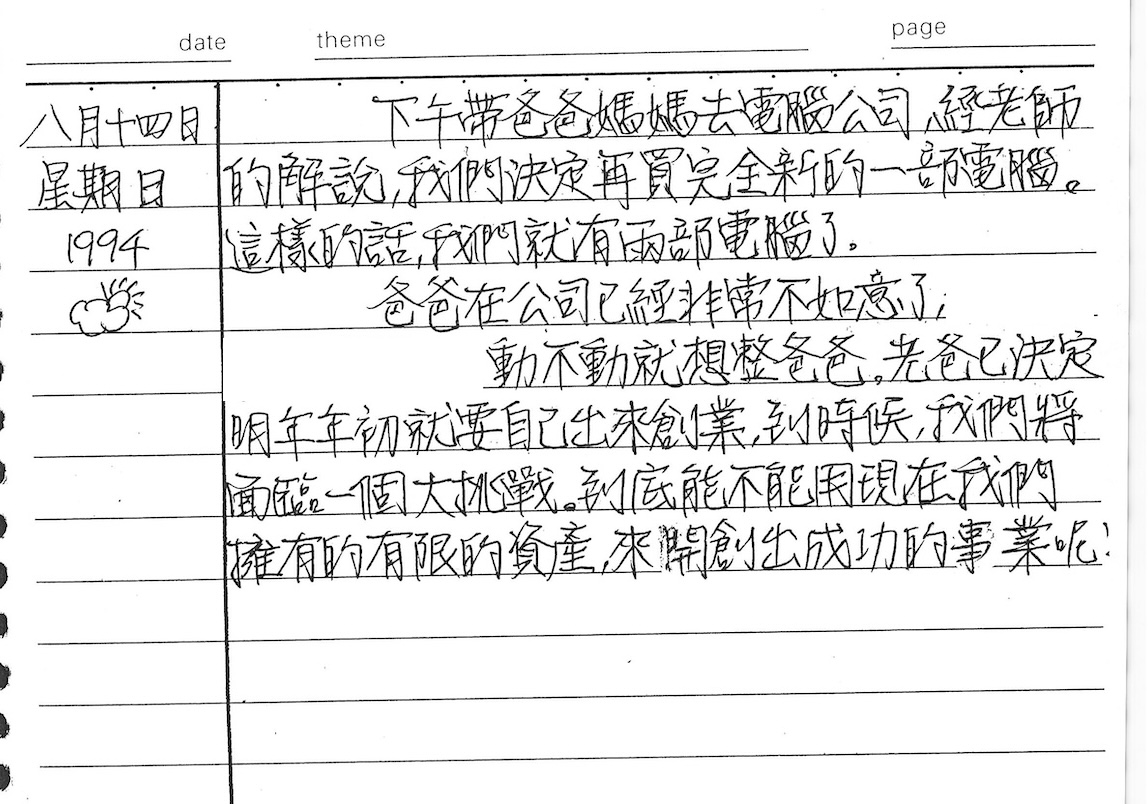 date theme page
八月十四日
星期日
1994
下午帶爸爸媽媽去電腦公司,經老師
的解說,我們決定再買完全新的一部電腦。
這樣的話,我們就有兩部電腦了。
爸爸在公司已經非常不如意了,
動不動就想整爸爸。老爸已決定
明年年初就要自己出來創業,到時候,我們將
面臨一個大挑戰。到底能不能用現在我們
擁有的有限的資產,來開創出成功的事業呢!